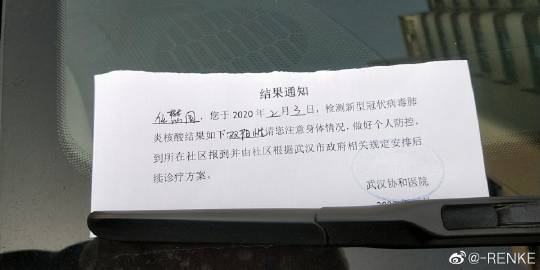 结果通知
国,您于2020年2月3日,检测新型冠状病毒肺
炎核酸结果如下双阳性请您注意身体情况,做好个人防控,
到所在社区报到并由社区根据武汉市政府相关规定安排后
续诊疗方案。
武汉协和医院
@-RENKE